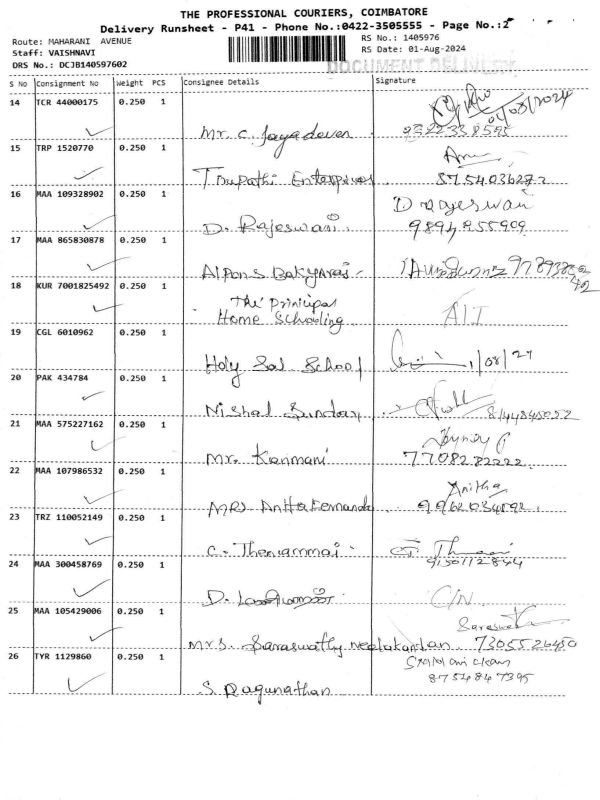 THE PROFESSIONAL COURIERS, COIMBATORE
Delivery Runsheet - P41 - Phone No.:0422-3505555 - Page No.:2
Route: MAHARANI AVENUE
RS No.: 1405976
Staff: VAISHNAVI
RS Date: 01-Aug-2024
DRS No.: DCJB140597602
DOCUMENT DELIVERY
S No Consignment No Weight PCS Consignee Details Signature
14 TCR 44000175 0.250 1
Mr. C. Jayadevan
15 TRP 1520770 0.250 1
Tirupathi Enterprises
16 MAA 109328902 0.250 1
D. Rajeswari
D Rajeswari
17 MAA 865830878 0.250 1
Alpons Bakyaraj
18 KUR 7001825492 0.250 1
The Prinicipal
Home Schooling
19 CGL 6010962 0.250 1
Holy Sai School
20 PAK 434784 0.250 1
Nishal Sundar
21 MAA 575227162 0.250 1
Mr. Kanmani
7708282222
22 MAA 107986532 0.250 1
Anitha
23 TRZ 110052149 0.250 1
C. Theniammai
24 MAA 300458769 0.250 1
D.
C/N
25 MAA 105429006 0.250 1
Mrs. Saraswathy Neelakandan 7305526450
26 TYR 1129860 0.250 1
8754847395
S. Ragunathan